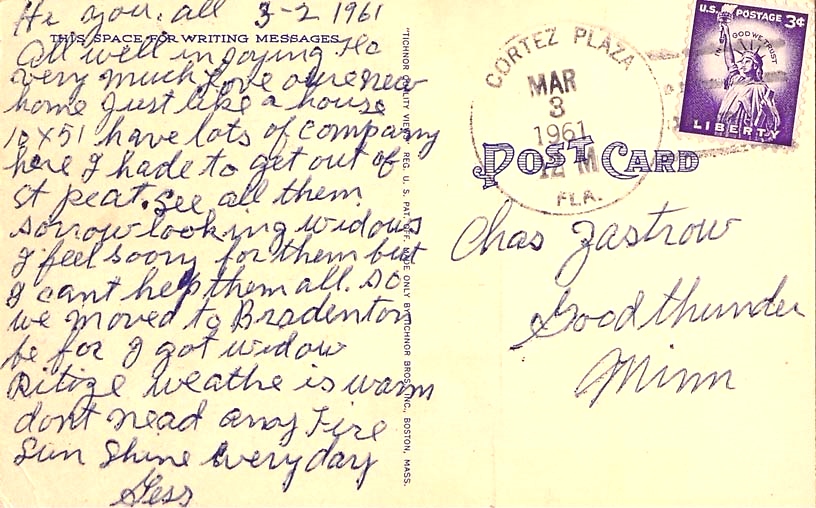 Hi you. all 3-2 1961
THIS SPACE FOR WRITING MESSAGES
All well in joying Flo
very much Love oure new
home Just like a house
10x51 have lots of company
here I hade to get out of
St peat. See all them
sorrow looking widows
I feel soory for them but
I cant help them all. so
we moved to Bradenton
be for I got widow
weathe is warm
dont nead any Fire
Sun Shine every day
Gess
"TICHNOR QUALITY VIEWS" REG. U. S. PAT. OFF. MADE ONLY BY TICHNOR BROS., INC., BOSTON, MASS.
CORTEZ PLAZA
MAR
3
1961
12 M
FLA.
U.S. POSTAGE 3¢
IN GOD WE TRUST
LIBERTY
POST CARD
Chas Zastrow
Good thunder
Minn